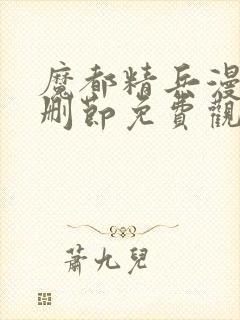 魔都精兵漫
刪節免費觀
蕭九兒